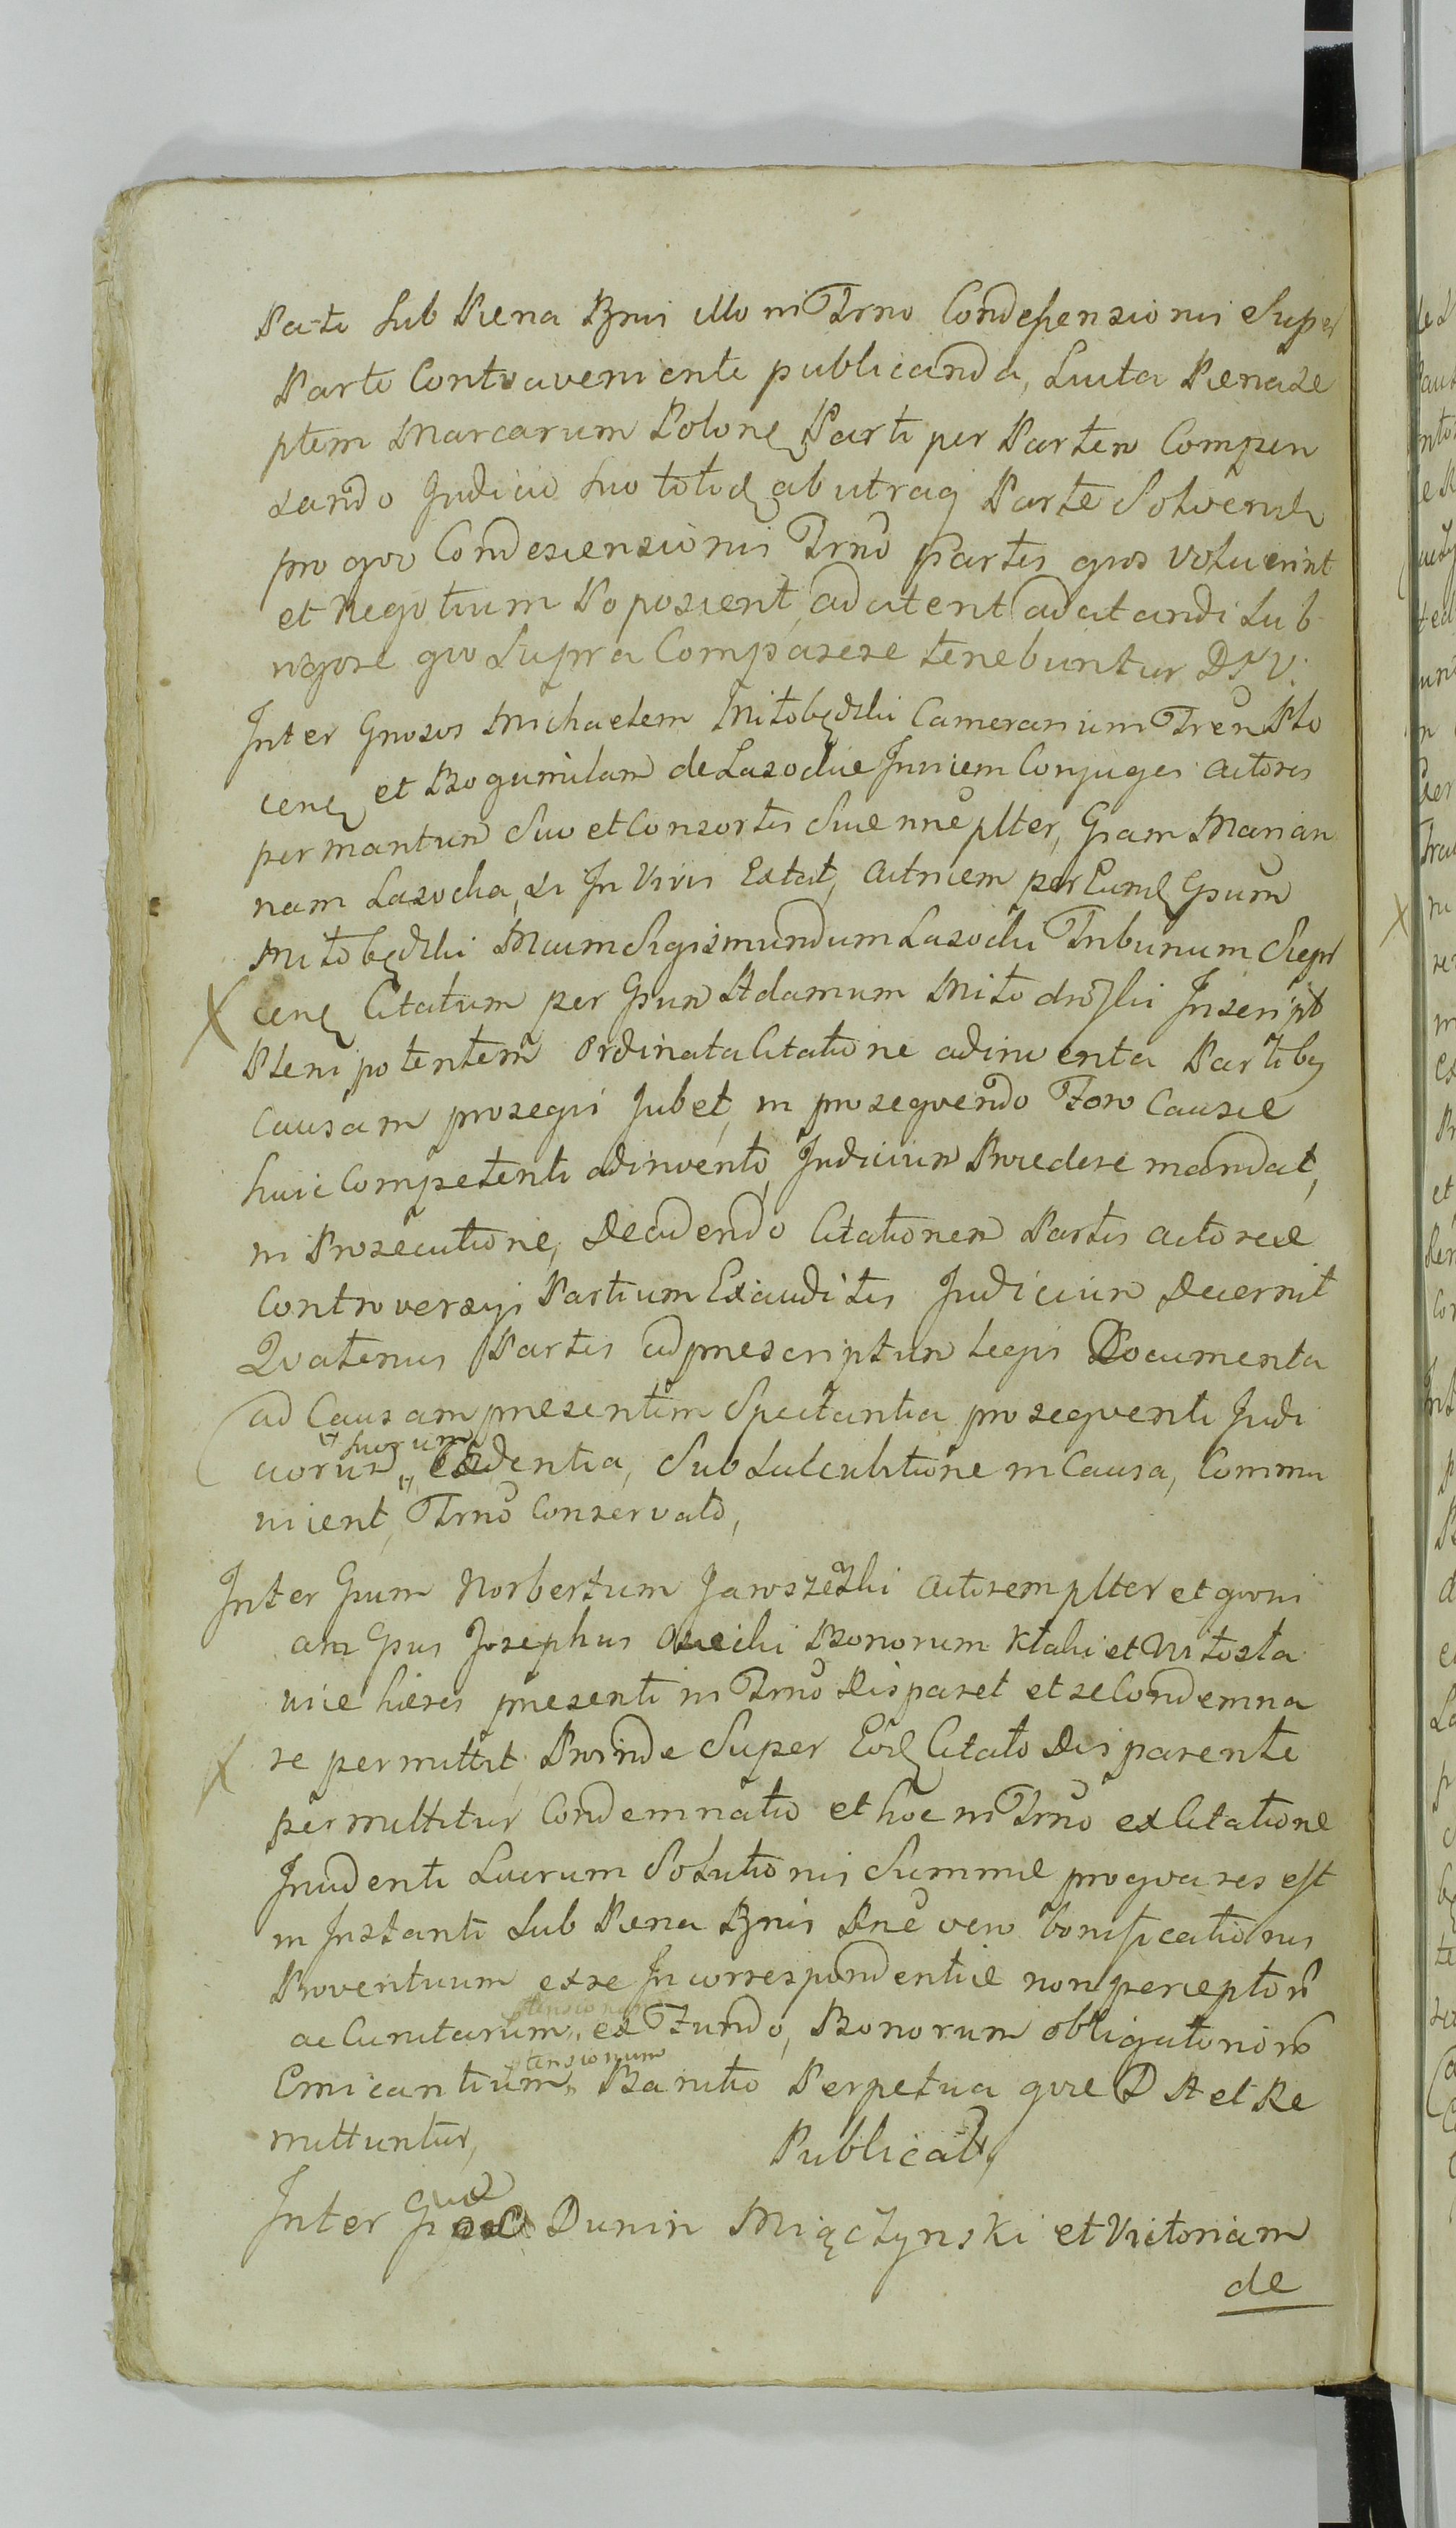 Pati sub Pœna Bnis illo in Trno Condescensionis Super
Parte Contraveniente publicanda, Luita Pœna se
ptem Marcarum Polon Parti per Partem Compen
sando Judicio suo totid ab utraq Parte Solvend
pro quo Condescensionis Trno partes quos voluerint
et Negotium Poposcent, adcitent adcitandi sub
rigore quo supra Comparere tenebuntur DNV.
Inter Gnosos Michaelem Miłobędzki Camerarium Tren Plo
cen et Bogumilam de Lasockie Invicem Conjuges Actores
per maritum Suo et Consortis Suæ nne plter, Gsam Marian
nam Lasocka, si In Vivis Extat, Actricem per Eund Gsum
Miłobędzki Mcum Sigismundum Lasocki Tribunum Siepr
cen Citatum per Gsum Adamum Miłodroski Inscript
Plenipotentem Ordinata Citatione adinventa Partibq
Causam prosequi Jubet, in prosequendo Foro Causæ
huic Competenti adinvento, Judicium Procedere mandat,
in Prosecutione, Decidendo Citationem Partis Actoreæ
Controversijs Partium Exauditis Judicium Decernit
Quatenus Partes ad præscriptum Legis Documenta
ad Causam præsentem Spectantia prosequenti Judi
suorum
ciorum Cadentia, Sub Succubitione in Causa, Commu
nicent, Trno Conservato,
Inter Gsum Norbertum Jaroszewski Actorem plter et quoni
am Gsus Josephus Osiecki Bonorum Ktaki et Miłosta
wice hæres præsenti in Trno Disparet et se Condemna
re permittit, Proinde Super Eod Citato Disparente
permittitur Condemnatio et hoc in Trno ex Citatione
Incidenti Lucrum Solutionis Summæ pro qua res est
in Instanti sub Pœna Bnis Pne vero bonificationis
Proventuum ex re Incorrespondentiæ non perceptor
ptensionum
ac Cunctarum ex Fundo, Bonorum obligatorior
ptensionum
Emicantium Banitio Perpetua quæ D A et Re
mittuntur, Publicat,
Inter Dunin Miączynski et Victoriam
de